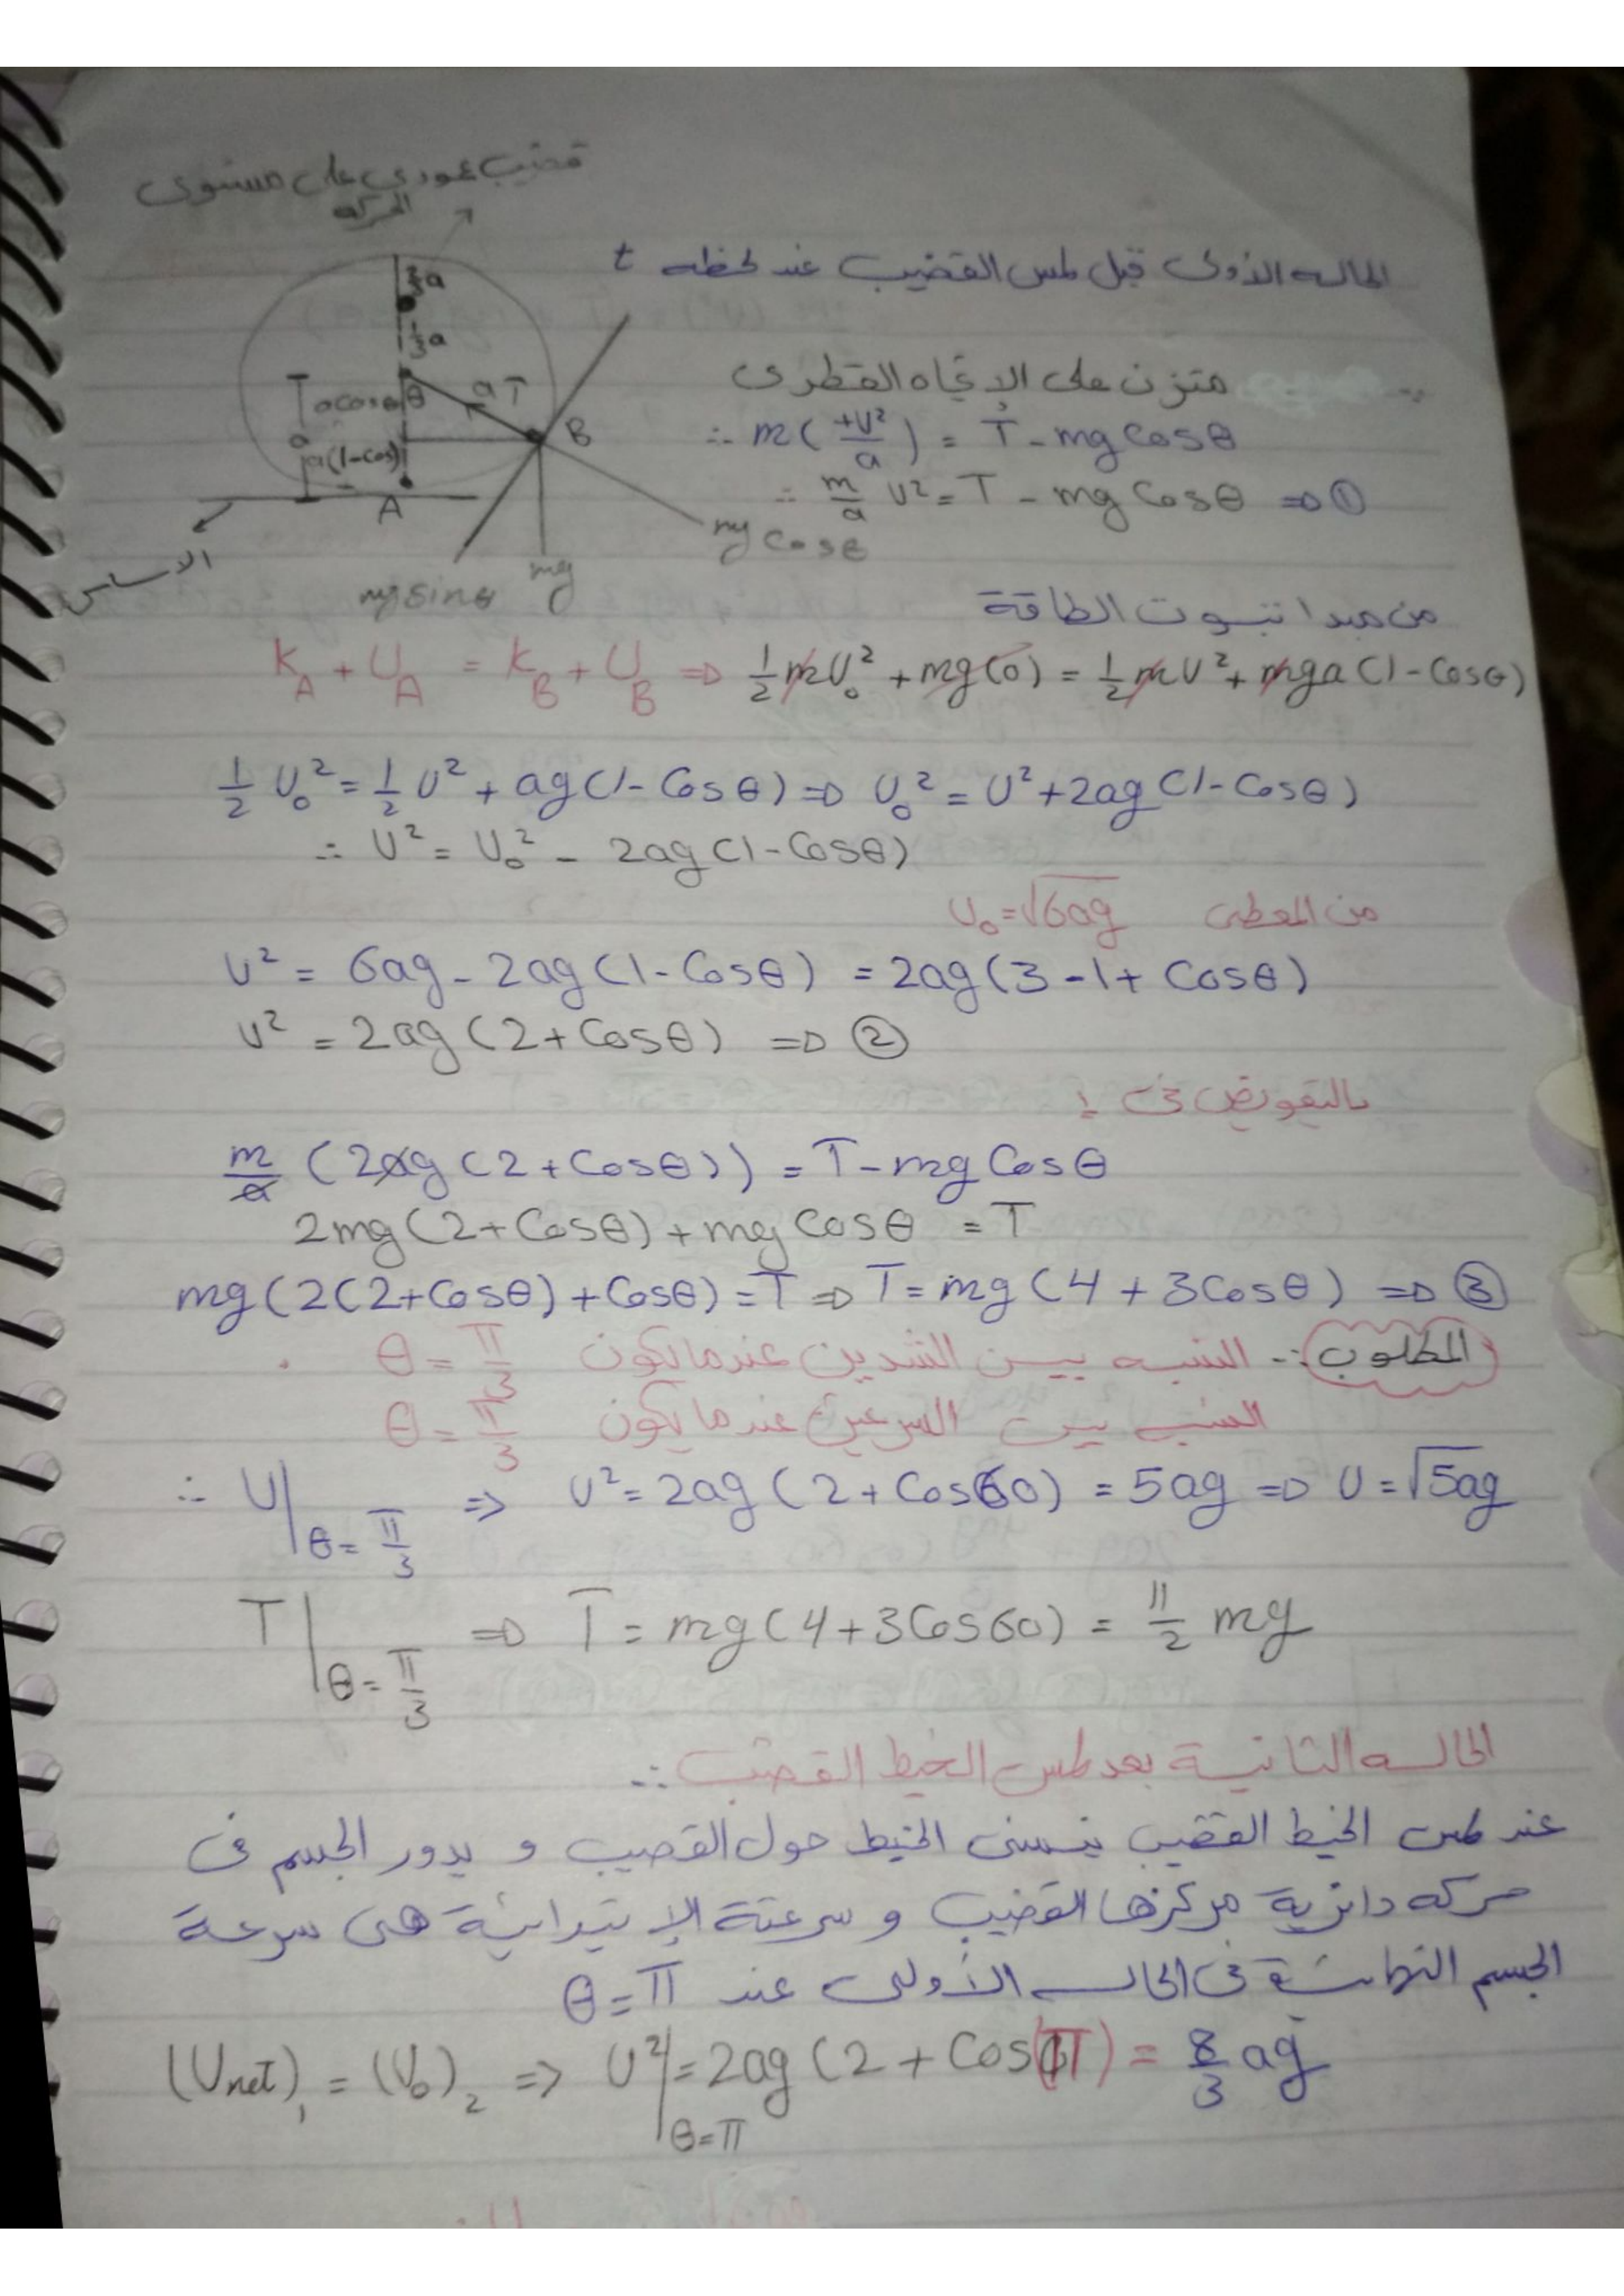 قضيب عمودي على مستوى
الحركه
الحاله الأولى قبل لمس القضيب عند لحظه t
2/3 a
1/3 a
a cosθ θ a T
a a(1-cos) B
A
mg cosθ
mg sinθ mg
الاساس
متزن على الإتجاه القطرى
∴ m(+U²/a) = T - mg Cosθ
∴ m/a U² = T - mg Cosθ ⇒ ①
من مبدا تبوت الطاقة
K_A + U_A = K_B + U_B ⇒ 1/2 mU₀² + mg(0) = 1/2 mU² + mga(1-Cosθ)
1/2 U₀² = 1/2 U² + ag(1-Cosθ) ⇒ U₀² = U² + 2ag(1-Cosθ)
∴ U² = U₀² - 2ag(1-Cosθ)
من المعطى U₀ = √6ag
U² = 6ag - 2ag(1-Cosθ) = 2ag(3-1+Cosθ)
U² = 2ag(2+Cosθ) ⇒ ②
بالتعويض فى 1
m/a (2ag(2+Cosθ)) = T - mg Cosθ
2mg(2+Cosθ) + mg Cosθ = T
mg(2(2+Cosθ)+Cosθ) = T ⇒ T = mg(4+3Cosθ) ⇒ ③
المطلوب :- النسبه بين الشدين عندما يكون θ = π/3
النسبه بين السرعتين عندما يكون θ = π/3
∴ U|θ=π/3 ⇒ U² = 2ag(2+Cos60) = 5ag ⇒ U = √5ag
T|θ=π/3 ⇒ T = mg(4+3Cos60) = 11/2 mg
الحاله الثانية بعد لمس الخيط القضيب :-
عند لمس الخيط القضيب ينسنى الخيط حول القصيب و يدور الجسم فى
حركه دائرية مركزها القضيب و سرعتة الإبتدائية هى سرعة
الجسم النهائية فى الحاله الأولى عند θ = π
(U_net)₁ = (U₀)₂ ⇒ U²|θ=π = 2ag(2+Cos(π)) = 8/3 ag